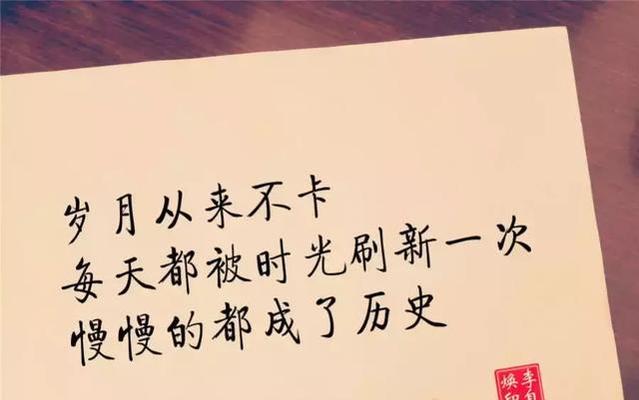 岁月从来不卡
每天都被时光刷新一次
慢慢的都成了历史
李自
焕印